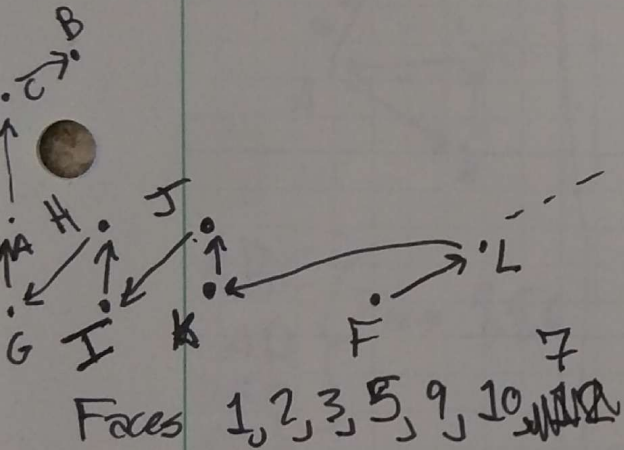 B
C
H J
A
L
G I K F
7
Faces 1, 2, 3, 5, 9, 10,